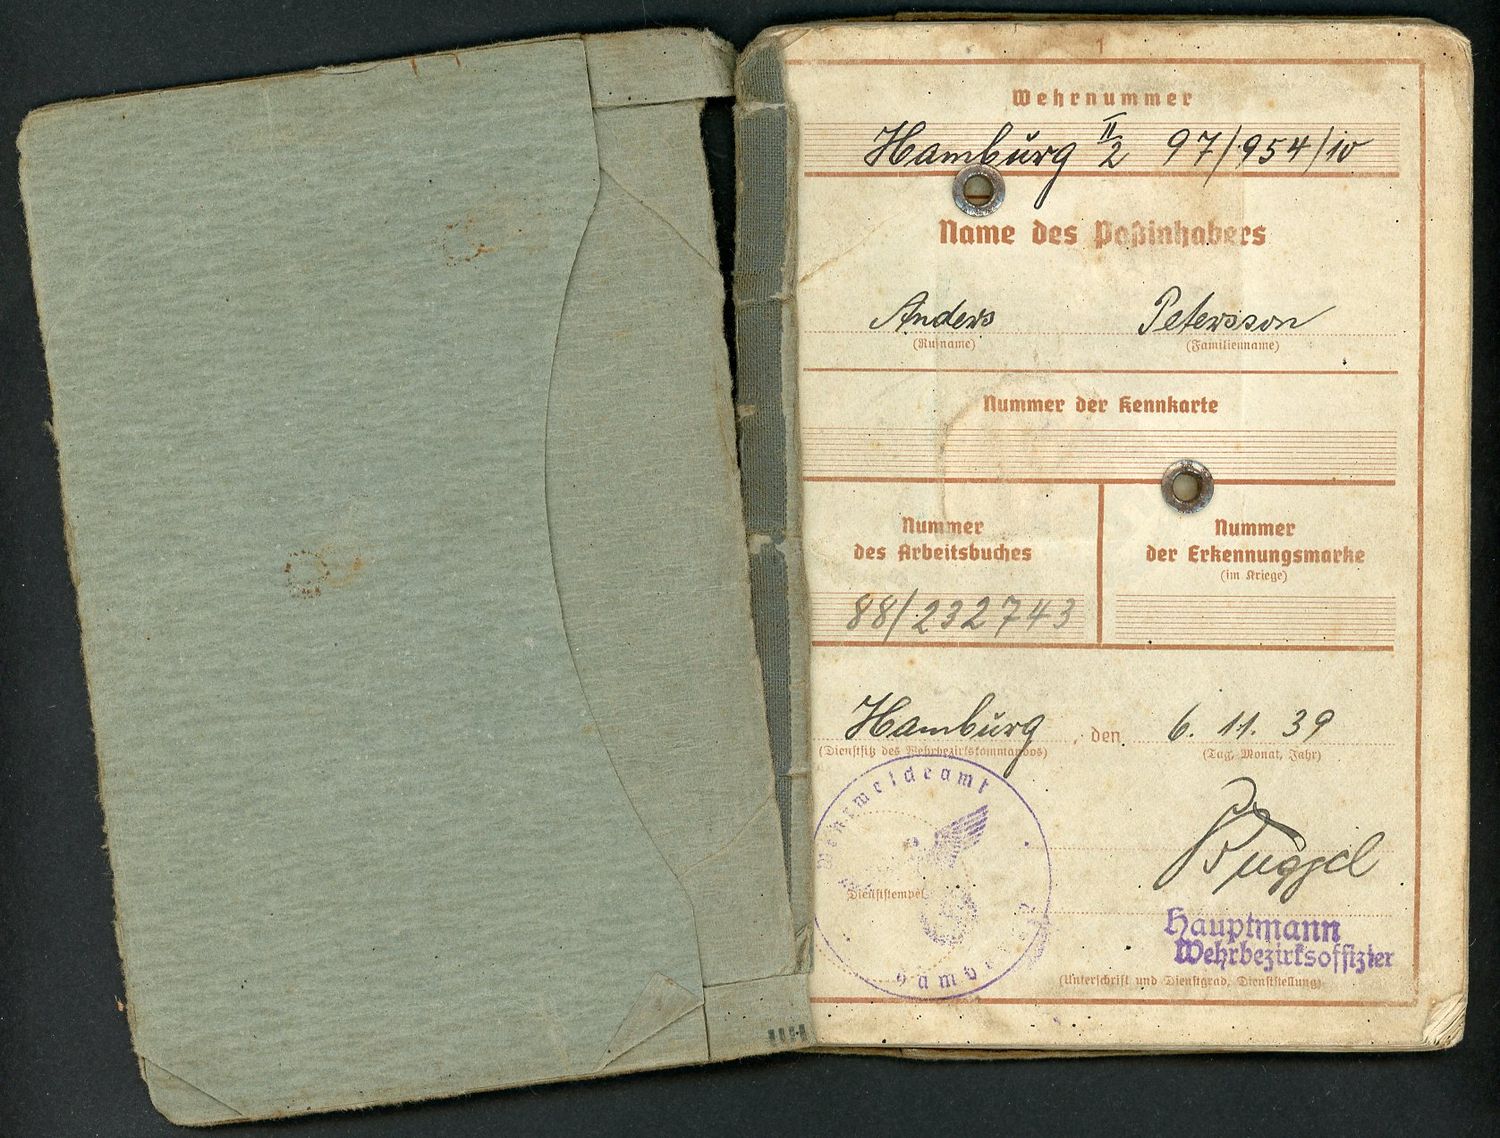 1
Wehrnummer
Hamburg II/2 97/954/10
Name des Paßinhabers
Anders Petersson
(Rufname) (Familienname)
Nummer der Kennkarte
Nummer des Arbeitsbuches
88/232743
Nummer der Erkennungsmarke
(im Kriege)
Hamburg, den 6. 11. 39
(Dienstsitz des Wehrbezirkskommandos) (Tag, Monat, Jahr)
Wehrmeldeamt
Hamburg
Dienststempel
Hauptmann
Wehrbezirksoffizier
(Unterschrift und Dienstgrad, Dienststellung)